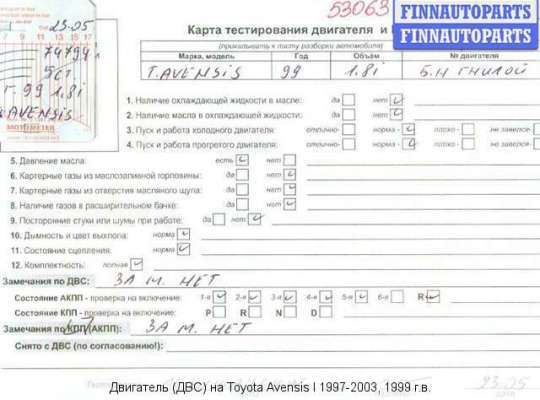 53063
FINNAUTOPARTS
FINNAUTOPARTS
23.05
7 9 11 13 15 17
74794
561
Т. 99 1.8i
AVENSIS
MOTOMETER
Карта тестирования двигателя и
(прикалывать к листу разборки автомобиля)
Марка, модель Год Объём № двигателя
T. AVENSIS 99 1.8i Б.Н ГНИЛОЙ
1. Наличие охлаждающей жидкости в масле: да нет
2. Наличие масла в охлаждающей жидкости: да нет
3. Пуск и работа холодного двигателя: отлично- норма - плохо- не завелся-
4. Пуск и работа прогретого двигателя: отлично- норма - плохо - не завелся-
5. Давление масла: есть нет
6. Картерные газы из маслозаливной горловины: да нет
7. Картерные газы из отверстия масляного щупа: да нет
8. Наличие газов в расширительном бачке: да нет
9. Посторонние стуки или шумы при работе: да нет
10. Дымность и цвет выхлопа: норма
11. Состояние сцепления: норма
12. Комплектность: полная
Замечания по ДВС: ЗА М. НЕТ
Состояние АКПП - проверка на включение: 1-я 2-я 3-я 4-я 5-я 6-я R-
Состояние КПП - проверка на включение: P R N D
Замечания по КПП (АКПП): ЗА М. НЕТ
Снято с ДВС (по согласованию!):
23-05
Двигатель (ДВС) на Toyota Avensis I 1997-2003, 1999 г.в.